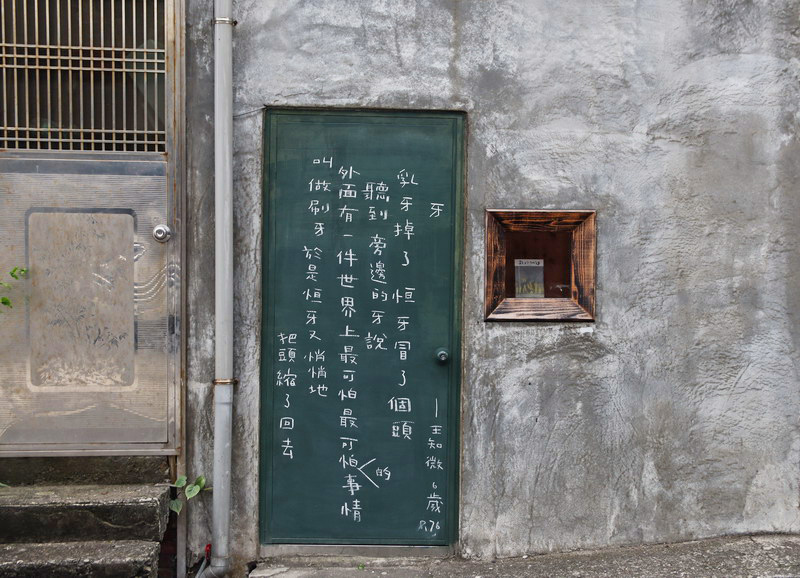 牙
—王知微，6歲
P.76
乳牙掉了 恒牙冒了個頭
聽到 旁邊的牙說
外面有一件世界上最可怕最可怕的事情
叫做刷牙 於是恒牙又悄悄地
把頭縮了回去